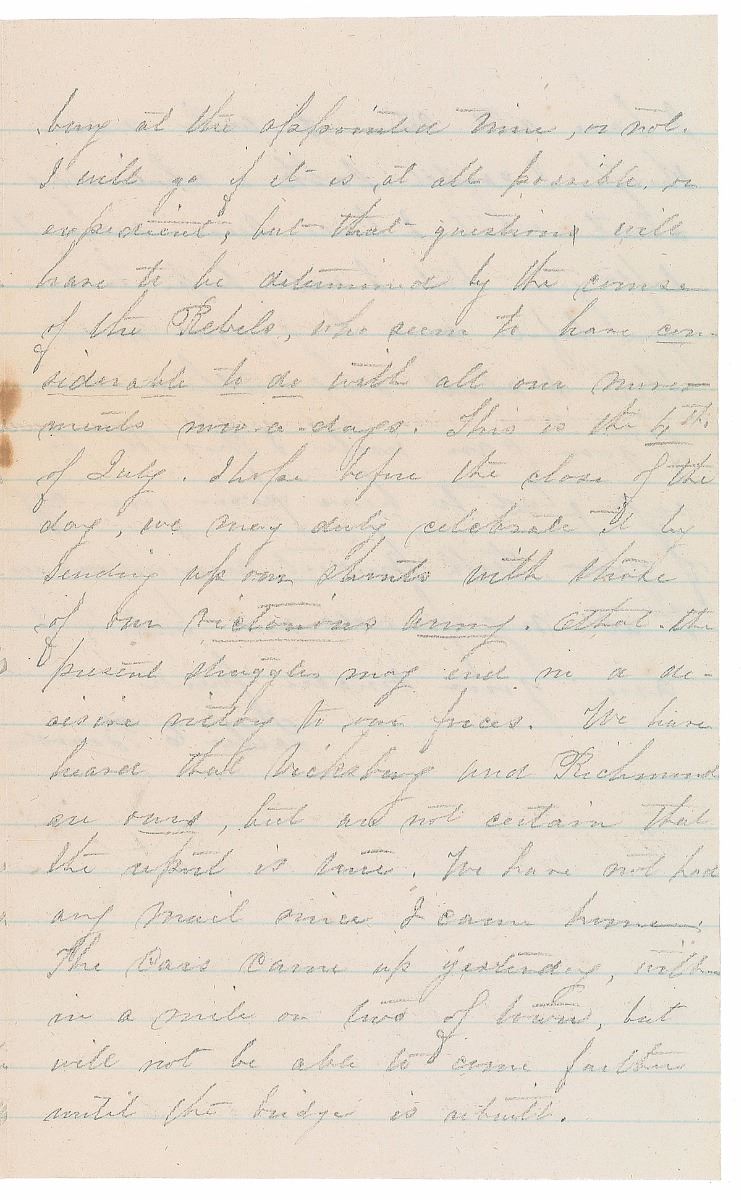 burg at the appointed time, or not.
I will go if it is at all possible. or
expedient, but that questions will
have to be determined by the course
of the Rebels, who seem to have con-
siderable to do with all our move-
ments now-a-days. This is the 4th.
of July. I hope before the close of the
day, we may duly celebrate it by
sending up our shouts with those
of our victorious army. O that the
present struggles may end in a de-
cisive victory to our forces. We have
heard that Vicksburg and Richmond
are ours, but are not certain that
the report is true. We have not had
any mail since I came home.
The Cars came up yesterday, with
in a mile or two of town, but
will not be able to come farther
until the bridge is rebuilt.